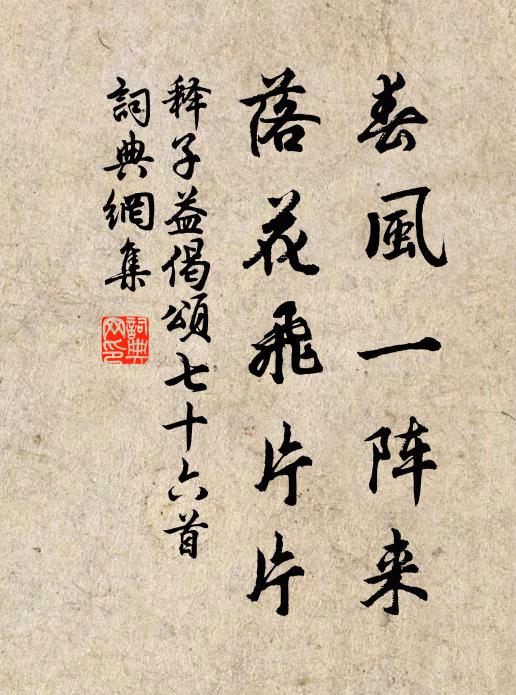 春風一阵来
落花飛片片
释子益偈頌七十六首
詞典網集
詞典網印